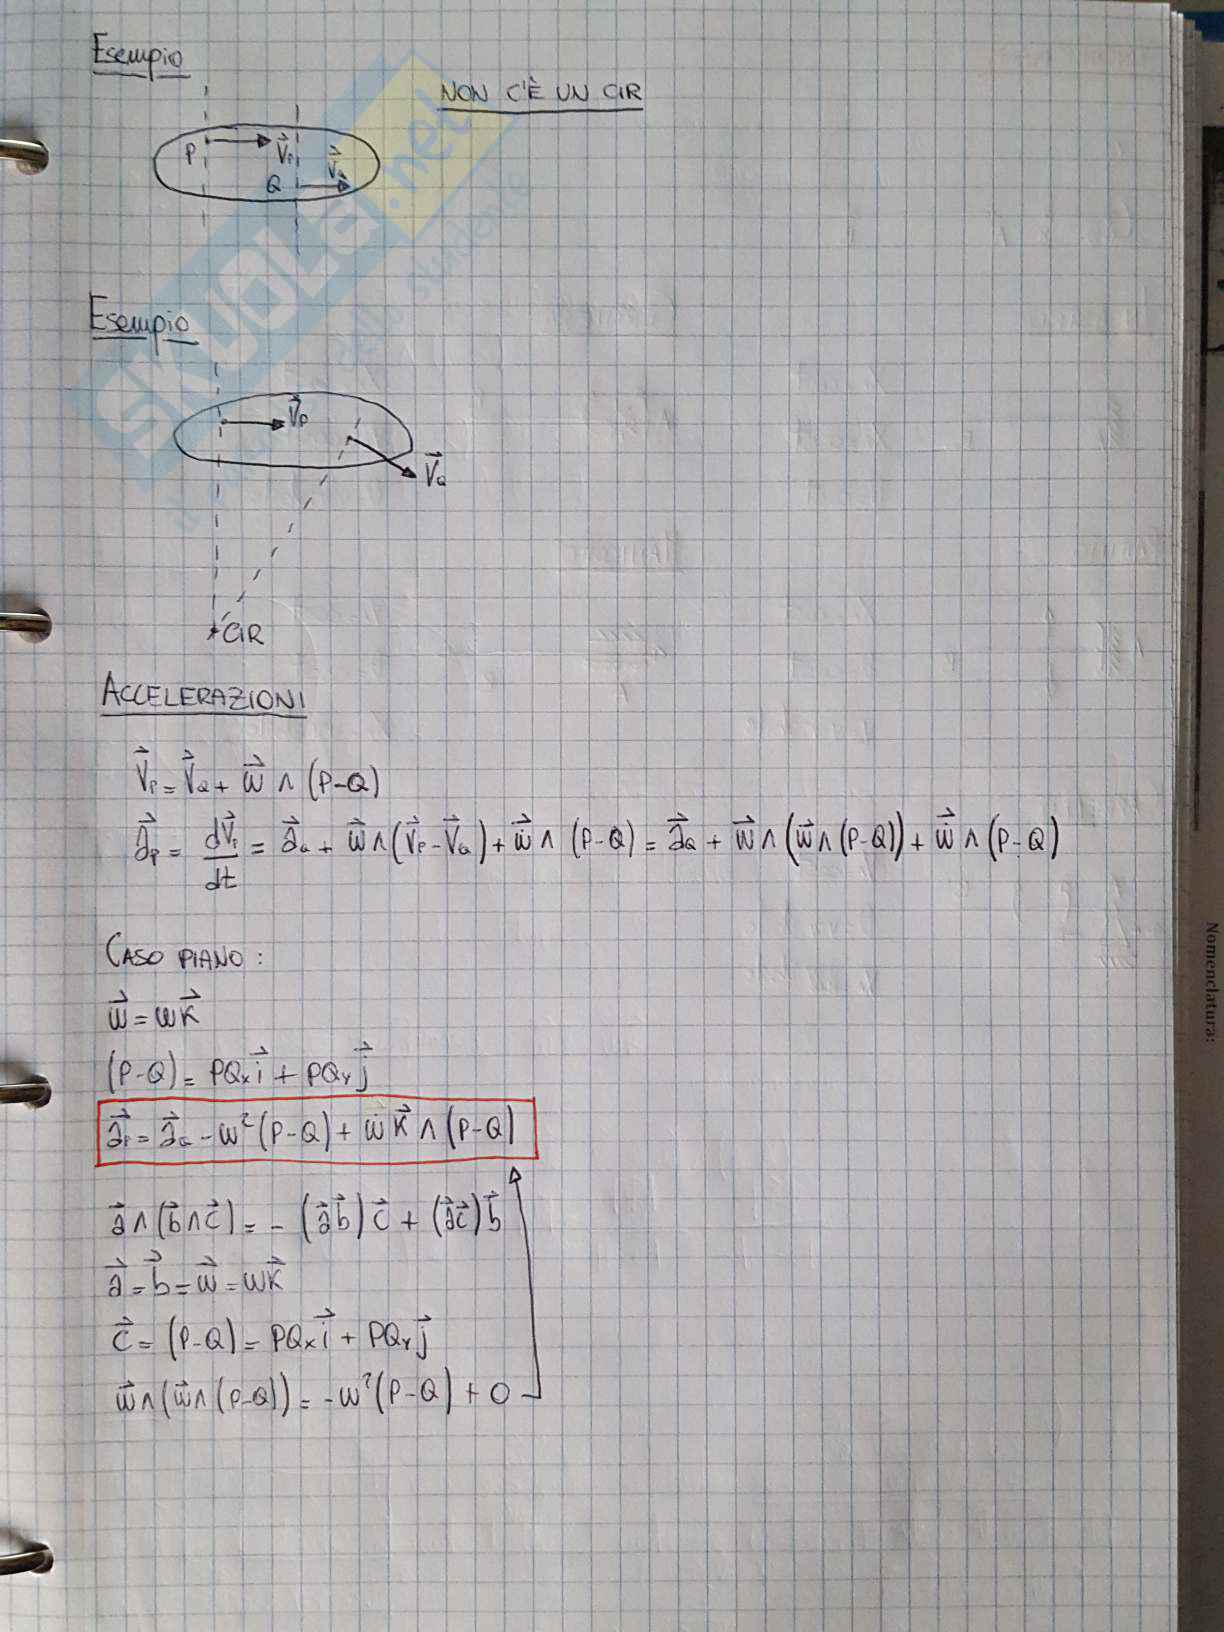 Esempio
NON C'È UN CIR
P V⃗P
Q V⃗
SKUOLA.net
Esempio
V⃗P
V⃗Q
CIR
ACCELERAZIONI
V⃗P = V⃗Q + w⃗ ∧ (P-Q)
a⃗P = dV⃗P/dt = a⃗Q + w⃗ ∧ (V⃗P - V⃗Q) + ẇ⃗ ∧ (P-Q) = a⃗Q + w⃗ ∧ (w⃗ ∧ (P-Q)) + ẇ⃗ ∧ (P-Q)
CASO PIANO:
w⃗ = wK⃗
(P-Q) = PQx i⃗ + PQy j⃗
a⃗P = a⃗Q - w²(P-Q) + ẇK⃗ ∧ (P-Q)
a⃗ ∧ (b⃗ ∧ c⃗) = - (a⃗b⃗)c⃗ + (a⃗c⃗)b⃗
a⃗ = b⃗ = w⃗ = wK⃗
c⃗ = (P-Q) = PQx i⃗ + PQy j⃗
w⃗ ∧ (w⃗ ∧ (P-Q)) = -w²(P-Q) + 0
Nomenclatura: